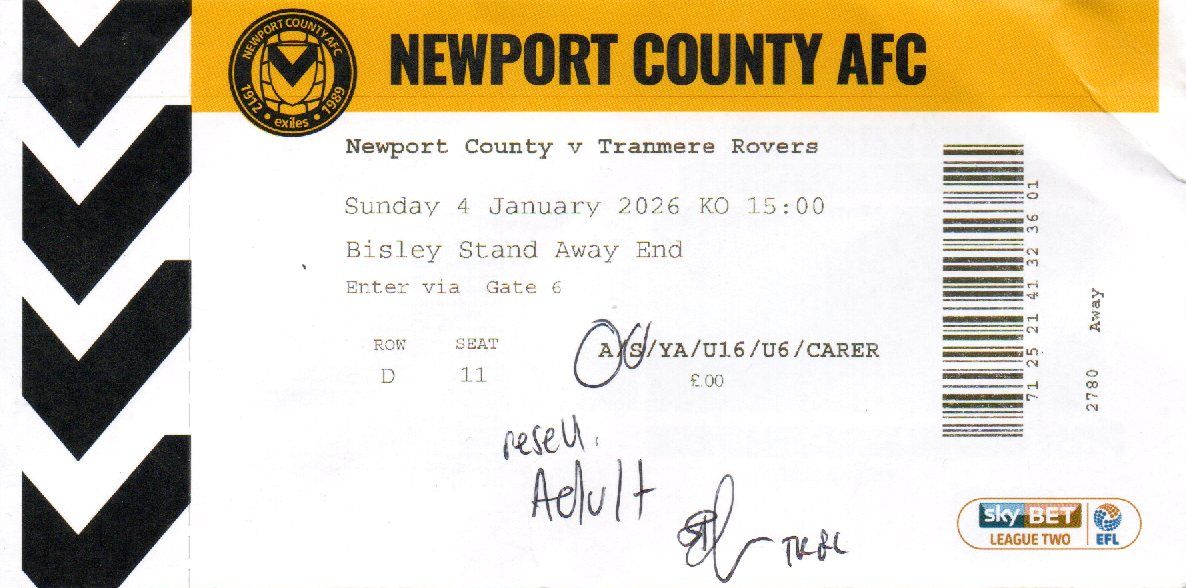 NEWPORT COUNTY AFC
NEWPORT COUNTY AFC
1912 • exiles • 1989
Newport County v Tranmere Rovers
Sunday 4 January 2026 KO 15:00
Bisley Stand Away End
Enter via Gate 6
ROW SEAT
D 11
A/S/YA/U16/U6/CARER
£.00
resell.
Adult
TRFC
71 25 21 41 32 36 01
2780 Away
sky BET
LEAGUE TWO
EFL